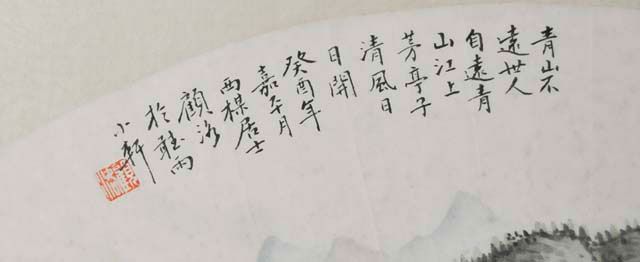 青山不
遠世人
自遠青
山江上
茅亭子
清風日
日開
癸酉年
嘉平月
西楳居士
顧洛
於聽雨
小軒